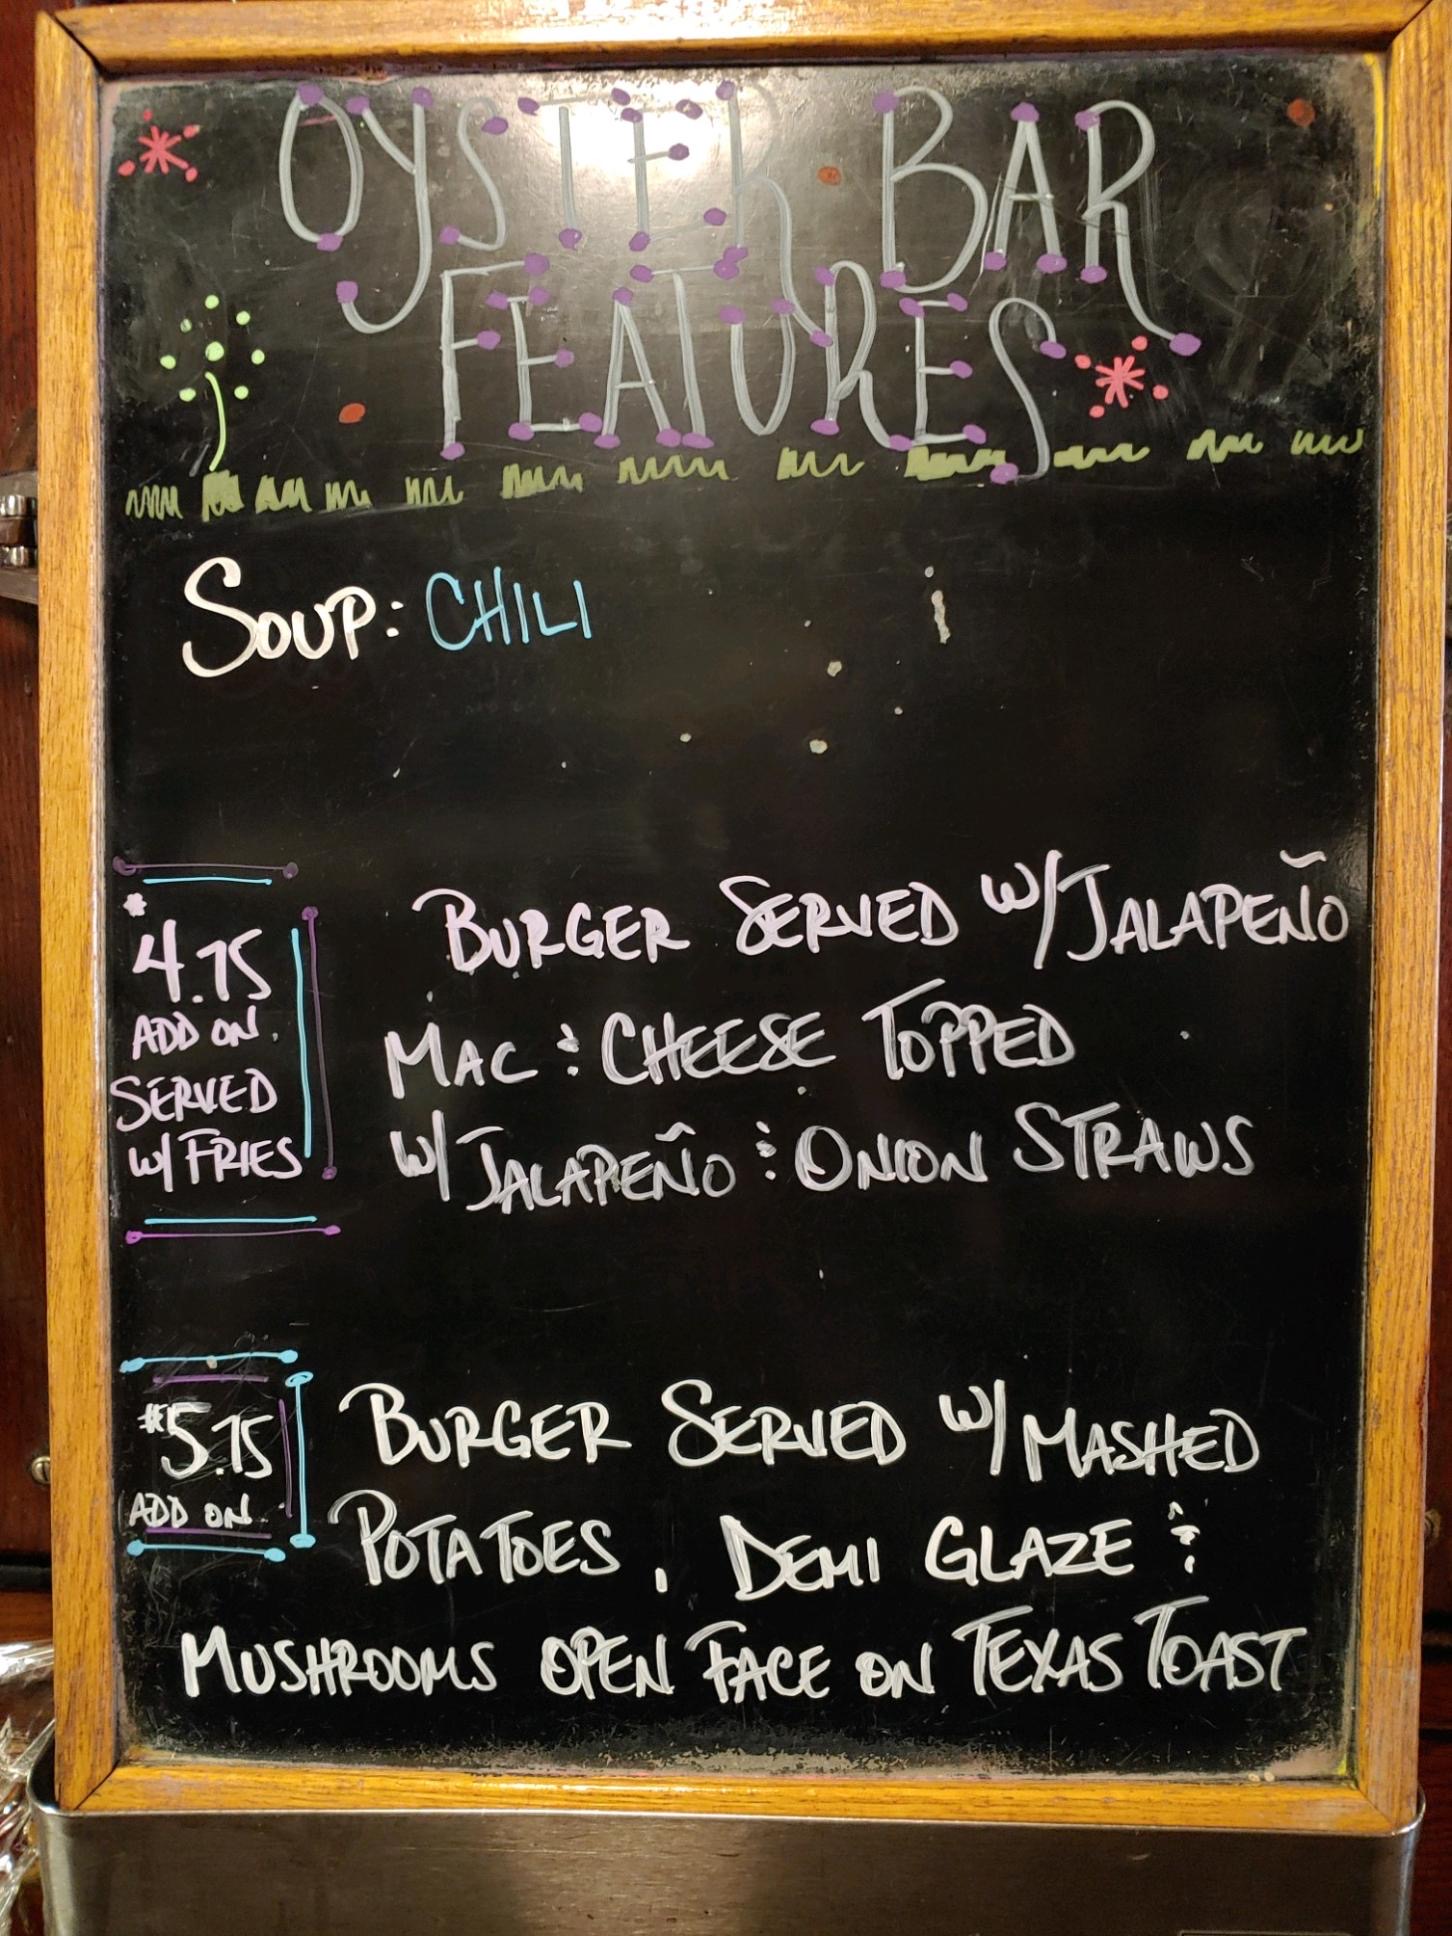 OYSTER BAR
FEATURES
SOUP: CHILI
$4.75
ADD ON.
SERVED
W/ FRIES
BURGER SERVED W/ JALAPEÑO
MAC & CHEESE TOPPED
W/ JALAPEÑO & ONION STRAWS
$5.75
ADD ON
BURGER SERVED W/ MASHED
POTATOES, DEMI GLAZE &
MUSHROOMS OPEN FACE ON TEXAS TOAST